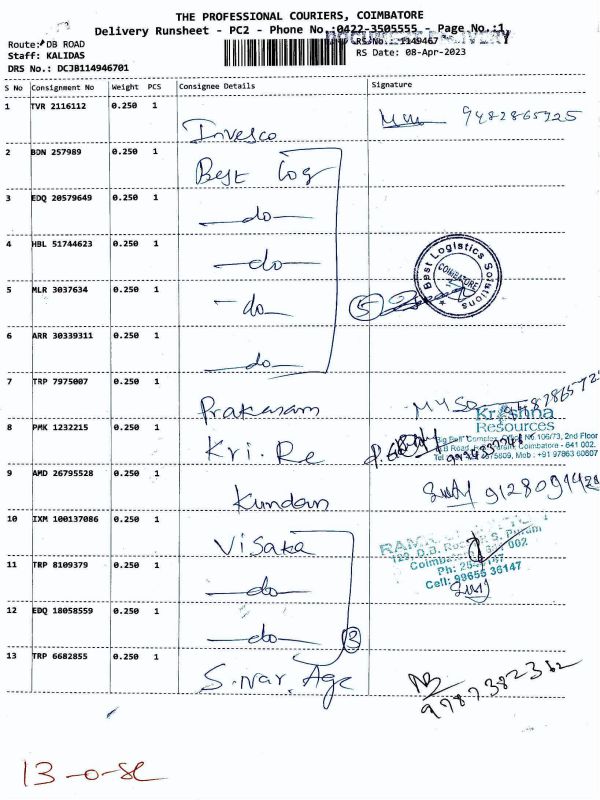 THE PROFESSIONAL COURIERS, COIMBATORE
Delivery Runsheet - PC2 - Phone No.:0422-3505555 - Page No.:1
Route: DB ROAD
Staff: KALIDAS
DRS No.: DCJB114946701
RS No. 1149467
RS Date: 08-Apr-2023
S No Consignment No Weight PCS Consignee Details Signature
1 TVR 2116112 0.250 1 Invesco 9482865725
2 BDN 257989 0.250 1 Best Log
3 EDQ 20579649 0.250 1 —do—
4 HBL 51744623 0.250 1 —do—
5 MLR 3037634 0.250 1 —do— 5
Best Logistics Solutions
COIMBATORE
6 ARR 30339311 0.250 1 —do—
7 TRP 7975007 0.250 1 Prakasam
8 PMK 1232215 0.250 1 Kri. Re
Krishna
Resources
Complex, No.106/73, 2nd Floor
Coimbatore - 641 002.
Mob : +91 97863 60607
9 AMD 26795528 0.250 1 Kundan
10 IXM 100137086 0.250 1 Visaka
Puram
002
Ph:
Cell: 99655 36147
11 TRP 8109379 0.250 1 —do—
12 EDQ 18058559 0.250 1 —do— 3
13 TRP 6682855 0.250 1 S.nar. Age
9787382362